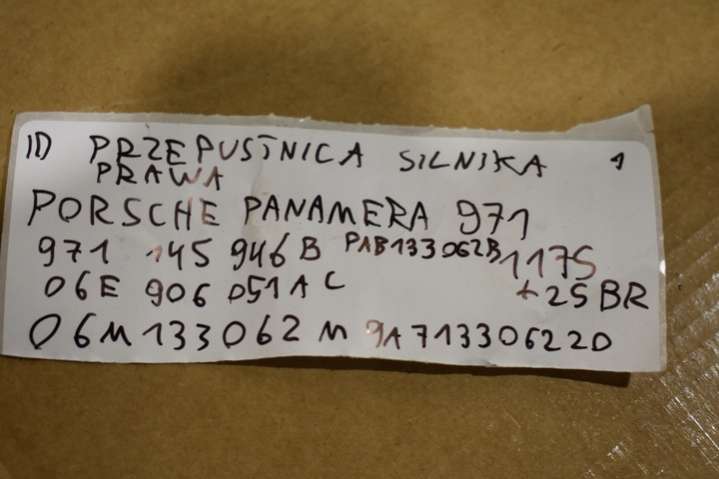 ID PRZEPUSTNICA SILNIKA 1
PRAWA
PORSCHE PANAMERA 971
971 145 946B PAB133062B 1175
06E 906 051A C +25BR
06M133062M 9A713306220